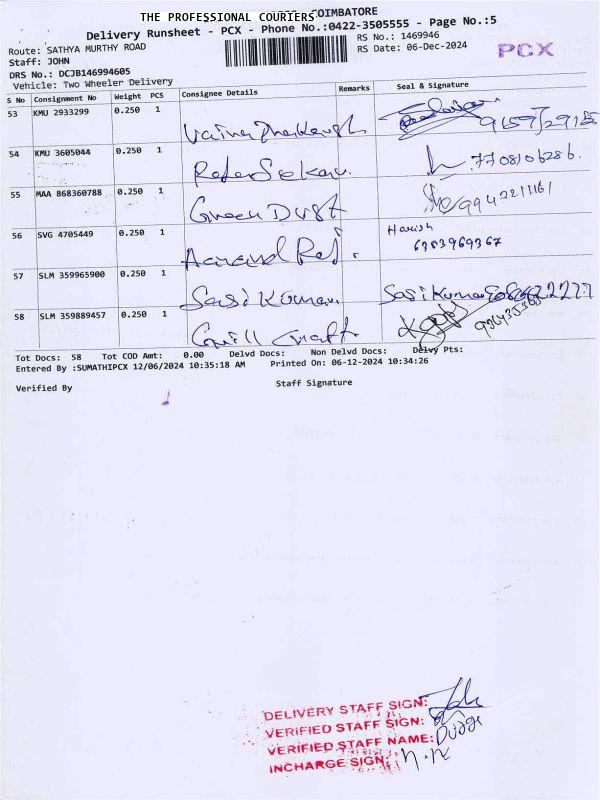 THE PROFESSIONAL COURIERS COIMBATORE
Delivery Runsheet - PCX - Phone No.:0422-3505555 - Page No.:5
Route: SATHYA MURTHY ROAD
RS No.: 1469946
Staff: JOHN
RS Date: 06-Dec-2024
PCX
DRS No.: DCJB146994605
Vehicle: Two Wheeler Delivery
S No Consignment No Weight PCS Consignee Details Remarks Seal & Signature
53 KMU 2933299 0.250 1
54 KMU 3605044 0.250 1 7708106286.
55 MAA 868360788 0.250 1 Green Dust 9942211161
56 SVG 4705449 0.250 1 Anand Raj. Harish
6383969367
57 SLM 359965900 0.250 1 Sasi Kumar Sasi Kumar
58 SLM 359889457 0.250 1
Tot Docs: 58 Tot COD Amt: 0.00 Delvd Docs: Non Delvd Docs: Delvy Pts:
Entered By :SUMATHIPCX 12/06/2024 10:35:18 AM Printed On: 06-12-2024 10:34:26
Verified By Staff Signature
DELIVERY STAFF SIGN:
VERIFIED STAFF SIGN:
VERIFIED STAFF NAME:
INCHARGE SIGN: